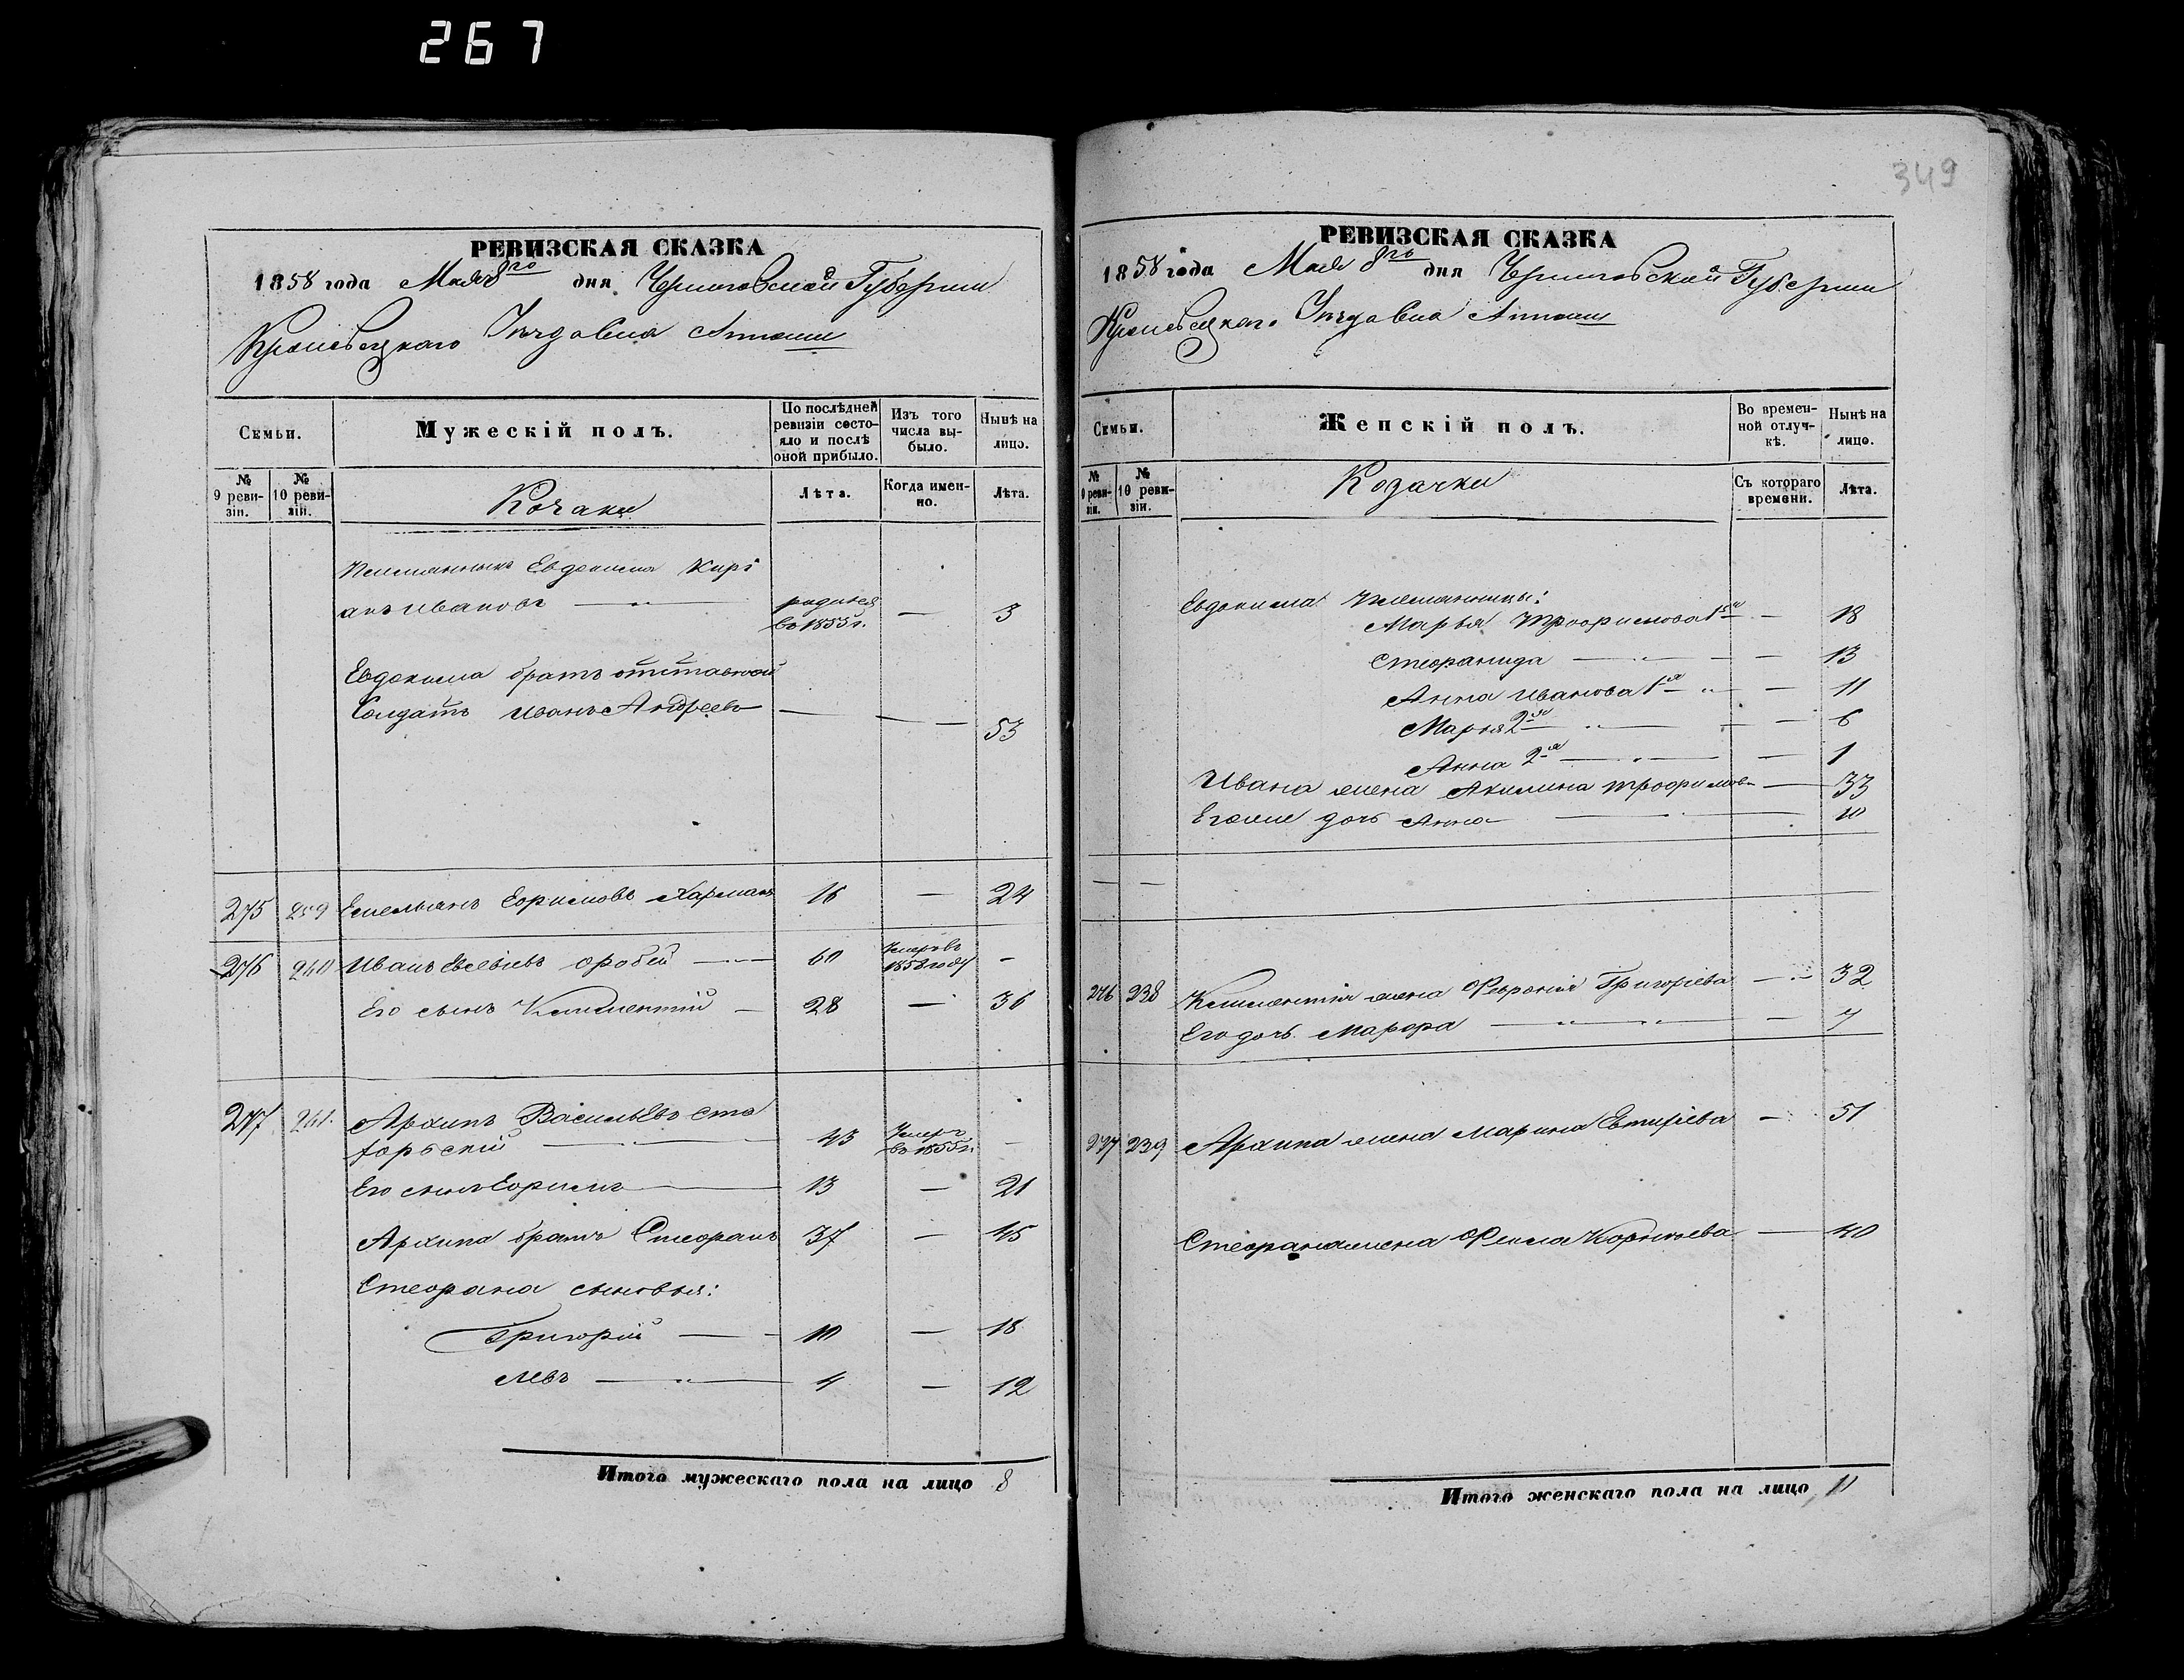 267
349
РЕВИЗСКАЯ СКАЗКА
1858 года Мая 8го дня Черниговской Губернии
Кролевецкаго Уѣзда Села
Семьи.
Мужескій полъ.
По послѣдней ревизіи состояло и послѣ оной прибыло.
Изъ того числа выбыло.
Нынѣ на лицо.
№ 9 ревизіи.
№ 10 ревизіи.
Козаки
Лѣта.
Когда именно.
Лѣта.
Племянникъ Евдокима Кирі
анъ Ивановъ — родился въ 1855 г. — 3
Евдокима братъ отставной
Солдатъ Иванъ Андреевъ — — 53
275 239 Емельянъ Ефимовъ Харман 16 — 24
276 240 Иванъ Евсевіевъ Оробей — 60 Умеръ въ 1858 году —
Его сынъ Климентій — 28 — 36
277 241. Архипъ Васильевъ Ста
форскій — 43 Умеръ въ 1855 г. —
Его сынъ Ефимъ — 13 — 21
Архипа братъ Стефанъ 37 — 45
Стефана сыновья:
Григорій — 10 — 18
Левъ — 4 — 12
Итого мужескаго пола на лицо 8
РЕВИЗСКАЯ СКАЗКА
1858 года Мая 8го дня Черниговской Губерніи
Кролевецкаго Уѣзда Села
Семьи.
Женскій полъ.
Во временной отлучкѣ.
Нынѣ на лицо.
№ 9 ревизіи.
№ 10 ревизіи.
Козачки
Съ котораго времени.
Лѣта.
Евдокима племянницы:
Марья Трофимова 1я — 18
Стефанида — — 13
Анна Иванова 1я — — 11
Марья 2я — — 6
Анна 2я — — 1
Ивана жена Акилина Трофимова — 33
Егоже дочь Анна — 10
— —
276 238 Климентія жена Февронія Григоріева — 32
Его дочь Марфа — — 7
277 239 Архипа жена Марина Евтифіева — 51
Стефана жена Фекла Корніева — 40
Итого женскаго пола на лицо 11